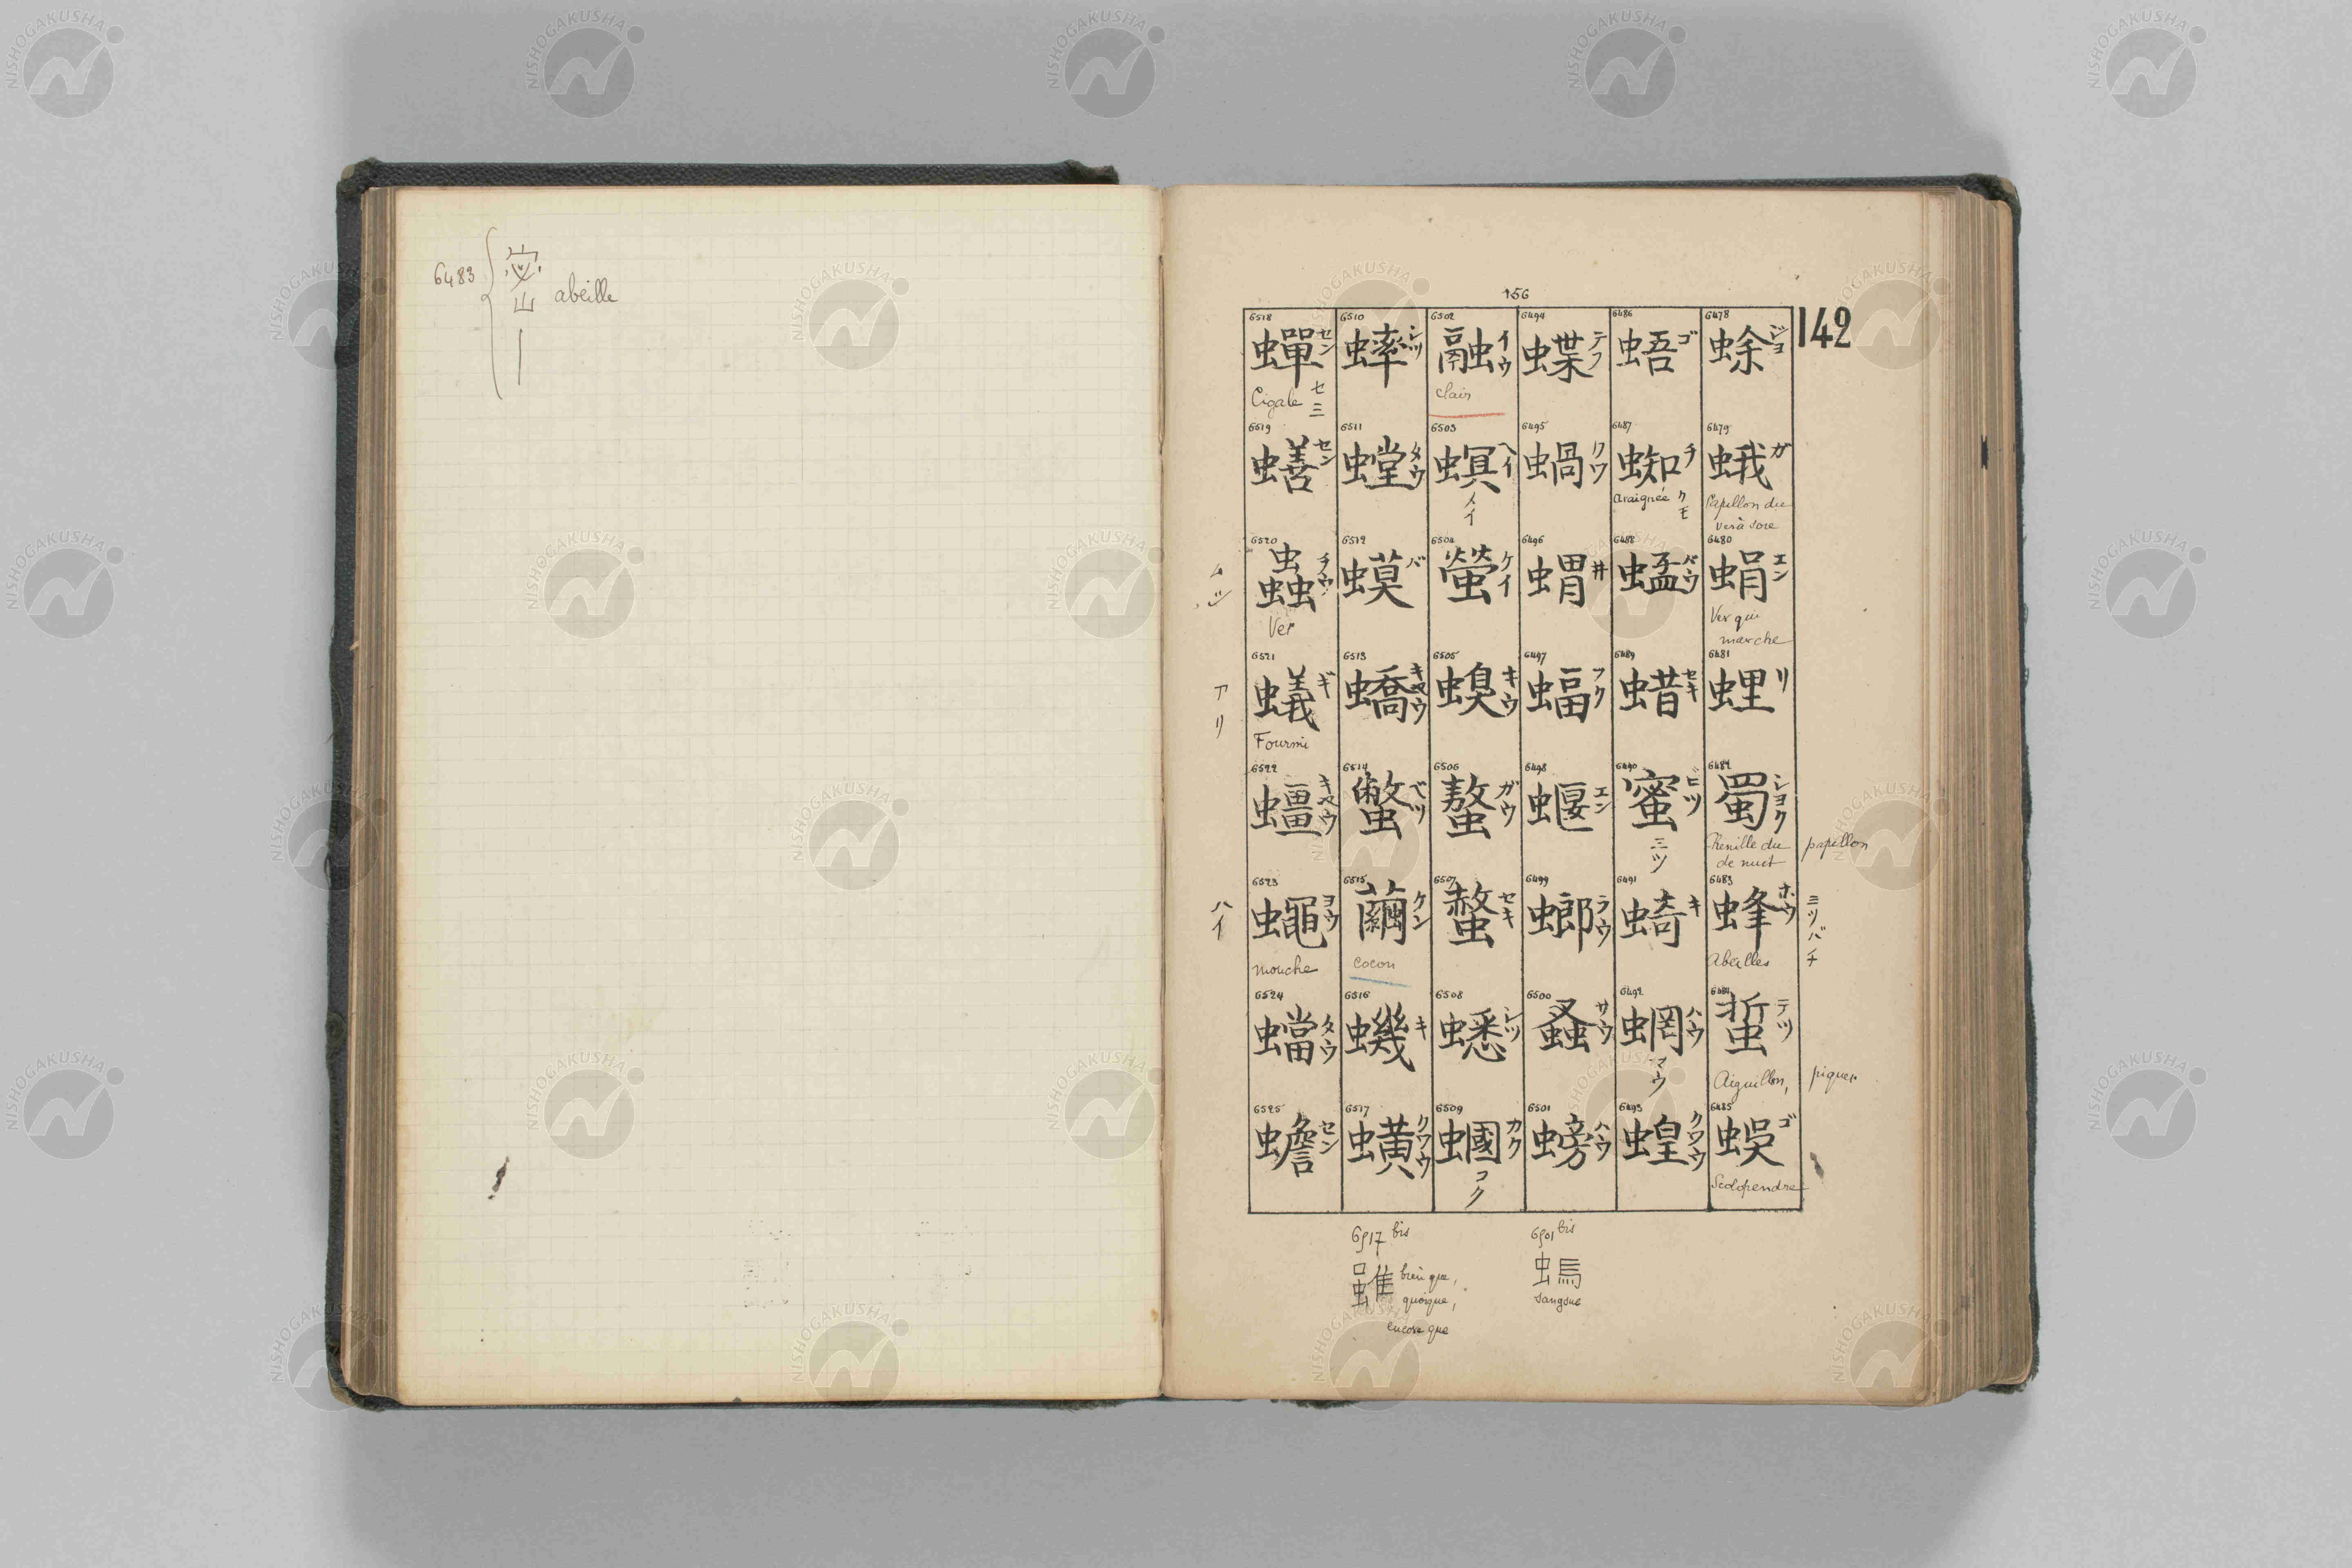 6483
密
山
abeille
156
142
6478 蜍 ジヨ
6479 蛾 ガ
Papillon du
ver à soie
6480 蜎 エン
Ver qui
marche
6481 蜰 リ
6482 蜀 シヨク
Chenille du papillon
de nuit
6483 蜂 ホウ
Abeilles
ミツバチ
6484 蜇 テツ
Aiguillon, piquer
6485 蜈 ゴ
Scolopendre
6486 蜈 ゴ
6487 蜘 チ
araignée クモ
6488 蜢 バウ
6489 蜡 セキ
6490 蜜 ビツ
ミツ
6491 蜻 キ
6492 蝄 ハウ
マウ
6493 蝗 クワウ
6494 蝶 テフ
6495 蝸 クワ
6496 蝟 井
6497 蝠 フク
6498 蝘 エン
6499 螂 ラウ
6500 蚤 サウ
6501 螃 ハウ
6502 融 イウ
clair
6503 螟 ヘイ
メイ
6504 螢 ケイ
6505 螑 キウ
6506 螯 ガウ
6507 螫 セキ
6508 蟋 シツ
6509 蟈 カク
コク
6510 蟀 シツ
6511 螳 タウ
6512 蟆 バ
6513 蟜 キヤウ
6514 蟞 ベツ
6515 繭 ケン
cocon
6516 蟣 キ
6517 蟥 クワウ
6518 蟬 セン
Cigale セミ
6519 蟮 セン
6520 蟲 チウ
Ver
ムシ
6521 蟻 ギ
Fourmi
アリ
6522 蠮 キヤウ
6523 蠅 ヨウ
mouche
ハイ
6524 蟷 タウ
6525 蟾 セン
6517 bis
雖 bien que,
quoique,
encore que
6501 bis
sangsue
NISHOGAKUSHA